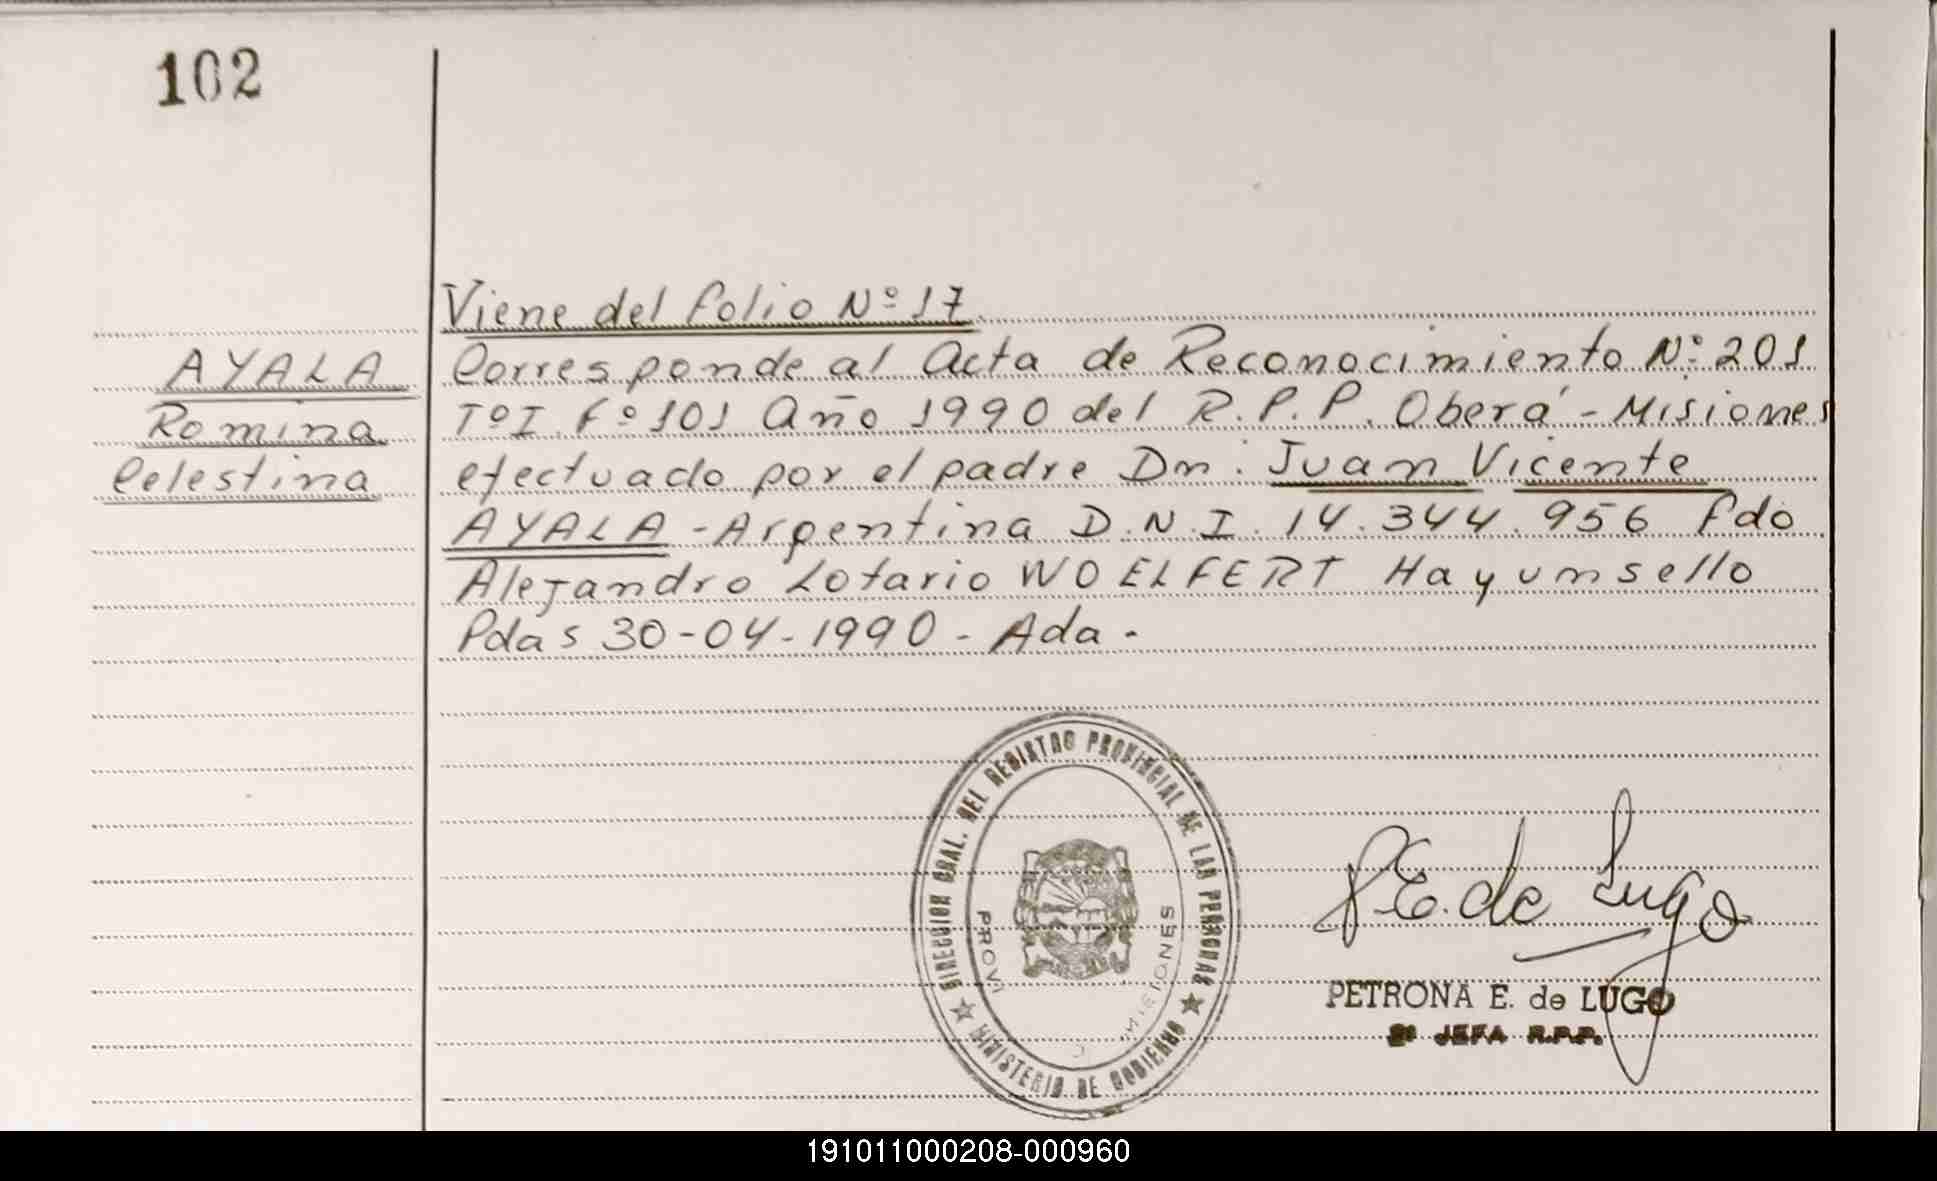 102
Viene del folio Nº 17
AYALA
Romina
Celestina
Corresponde al Acta de Reconocimiento Nº 201
Tº I Fº 101 Año 1990 del R.P.P. Oberá - Misiones
efectuado por el padre Dn. Juan Vicente
AYALA - Argentina D.N.I. 14.344.956 fdo
Alejandro Lotario WOELFERT Hay un sello
Pdas 30-04-1990 - Ada -
DIRECCION GRAL. DEL REGISTRO PROVINCIAL DE LAS PERSONAS
MINISTERIO DE GOBIERNO
MISIONES
P.E. de Lugo
PETRONA E. de LUGO
2ª JEFA R.P.P.
191011000208-000960